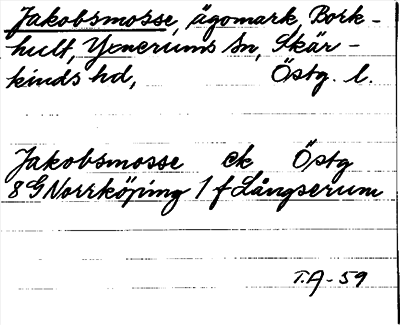 Jakobsmosse, ägomark, Bork-
hult, Yxnerums sn, Skär-
kinds hd, Östg. l.
Jakobsmosse ek Östg
8G Norrköping 1 f Långserum
T.A-59